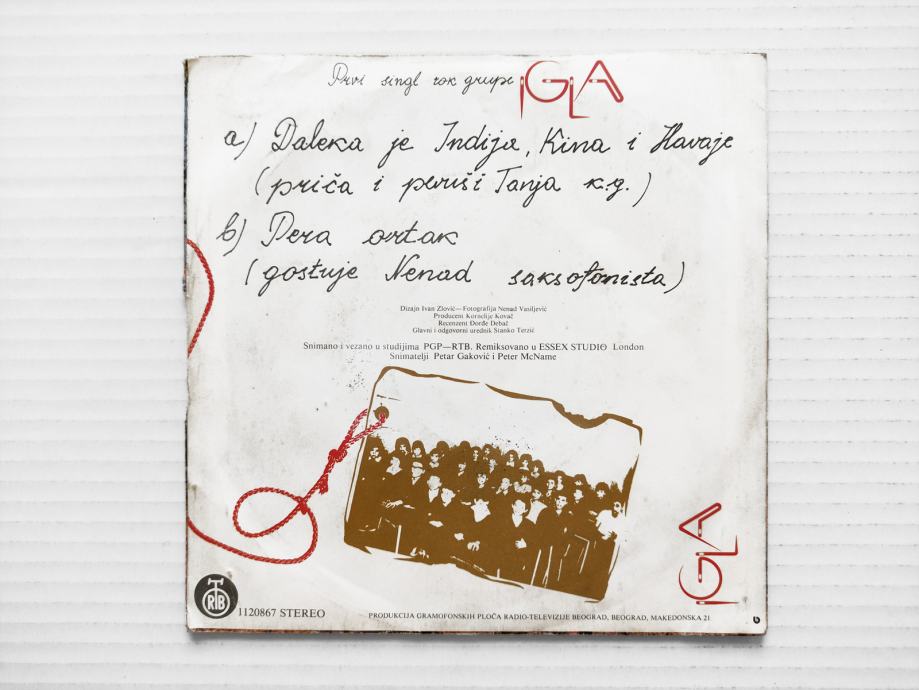 Prvi singl rok grupe IGLA
a) Daleka je Indija, Kina i Havaje
(priča i pevuši Tanja k.g.)
b) Pera ortak
(gostuje Nenad saksofonista)
Dizajn Ivan Zlović—Fotografija Nenad Vasiljević
Producent Kornelije Kovač
Recenzent Đorđe Debač
Glavni i odgovorni urednik Stanko Terzić
Snimano i vezano u studijima PGP—RTB. Remiksovano u ESSEX STUDIO London
Snimatelji Petar Gaković i Peter McName
IGLA
RTB
1120867 STEREO
PRODUKCIJA GRAMOFONSKIH PLOČA RADIO-TELEVIZIJE BEOGRAD, BEOGRAD, MAKEDONSKA 21